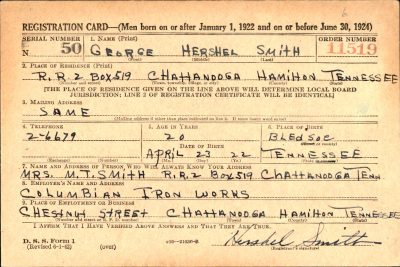 REGISTRATION CARD—(Men born on or after January 1, 1922 and on or before June 30, 1924)
SERIAL NUMBER 1. NAME (Print) ORDER NUMBER
N 50 GEORGE HERSHEL SMITH 11519
(First) (Middle) (Last)
2. PLACE OF RESIDENCE (Print)
R.R.2 BOX 519 CHATTANOOGA HAMIHON TENNESSEE
[THE PLACE OF RESIDENCE GIVEN ON THE LINE ABOVE WILL DETERMINE LOCAL BOARD
JURISDICTION; LINE 2 OF REGISTRATION CERTIFICATE WILL BE IDENTICAL]
3. MAILING ADDRESS
SAME
(Mailing address if other than place indicated on line 2. If same insert word same)
4. TELEPHONE 5. AGE IN YEARS 6. PLACE OF BIRTH
2-6679 20 BLEDSOE
DATE OF BIRTH
APRIL 23 22 TENNESSEE
7. NAME AND ADDRESS OF PERSON WHO WILL ALWAYS KNOW YOUR ADDRESS
MRS. M.T. SMITH R.R.2 BOX 519 CHATTANOOGA TENN
8. EMPLOYER'S NAME AND ADDRESS
COLUMBIAN IRON WORKS
9. PLACE OF EMPLOYMENT OR BUSINESS
CHESTNUT STREET CHATTANOOGA HAMIHON TENNESSEE
I AFFIRM THAT I HAVE VERIFIED ABOVE ANSWERS AND THAT THEY ARE TRUE.
D. S. S. Form 1
(Revised 6-9-42) (over) Hershel Smith
(Registrant's signature)